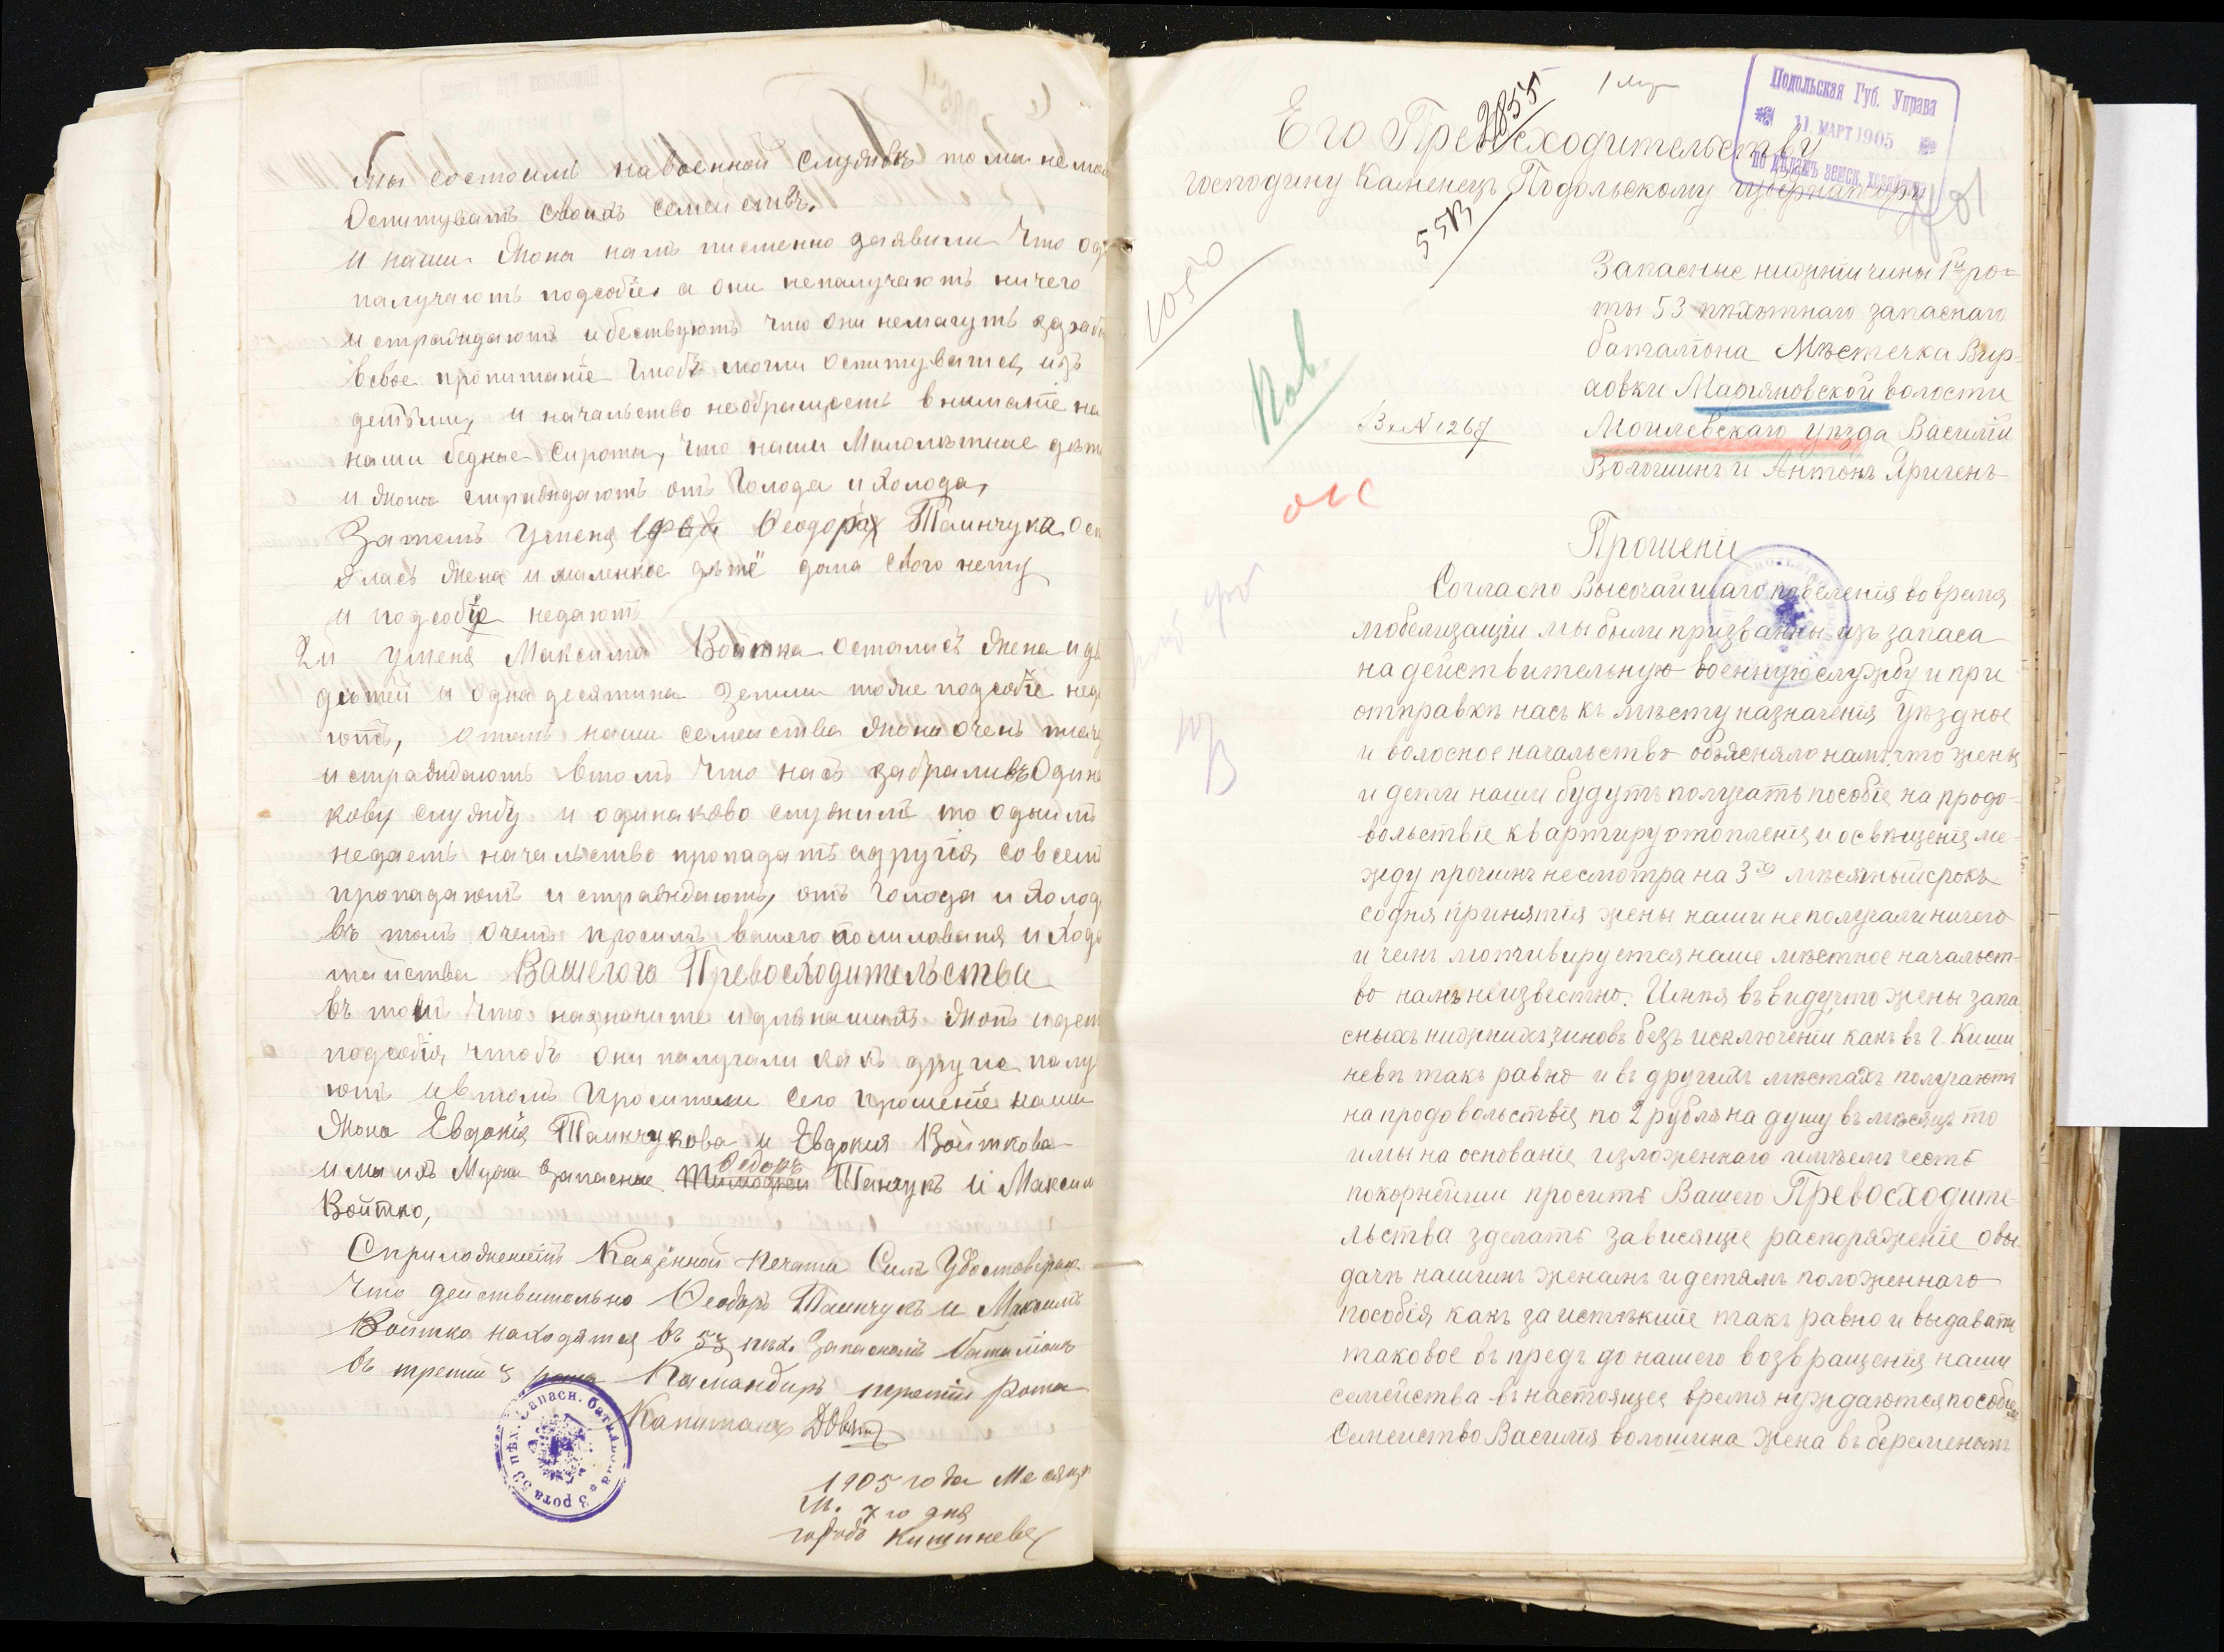 Мы состоимъ на военной службѣ то мы не мож
Оспитувать своихъ семействъ,
И наши жоны намъ писменно заявили что одн
палучаютъ подсобіе а они непалучають ничего
и страждаютъ и бествуютъ что они немагутъ
всвое пропитаніе чтобъ могли оспитуватся изъ
детьми, и начальство необращаетъ вниманіе на
наши бедные сироты, что наши Малолѣтные дѣти
и жоны страждаютъ отъ голода и холода,
Затемъ уменя Феодора Таинчука Ост
ялась жена и маленкое детё дома свого нету
и подсобіе недаютъ
2й уменя Максима Войтка осталась жена и дв
дѣтей и одна десятина земли тоже подсобіе неда
ютъ, отомъ наши семейства жоны очень плачу
и страждають втомъ что насъ забрали въ Один
кову службу и одинаково служимъ то однымъ
недаетъ начальство пропадать а другія совсемъ
пропадаютъ и страждають, отъ голода и холода
въ томъ очень просимъ вашего помилованія и хода
тайства Вашегого Превосходительства
въ томъ что назначите и для нашихъ жонъ и дет
подсобія чтобъ они палучали какъ другіе палу
ютъ и втомъ просители сего прошеніе наши
жоны Евдокія Таинчукова и Евдокия Войткова
и мы ихъ Мужа запасные Тимофей Федоръ Танчукъ и Максим
Войтко,
Сприложеніемъ Казённой печати Симъ Удостоверяю
Что действительно Феодоръ Таинчукъ и Максимъ
Войтко находятся въ 53 пѣх. Запасномъ баталіонѣ
въ третий роты Командиръ третій роты
Капитанъ
3 рота 53 пѣх. Запасн. баталіона
1905 года Месяца
М. 7 го дня
городъ Кишиневъ
2855
Подольская Губ. Управа
11 МАРТ 1905
по дѣламъ земск. хозяйства
Его Превосходительству
господину Каменецъ Подольскому губернатору
Запасные нижніи чины 1й ро=
ты 53 пѣхотнаго запаснаго
баталіона Мѣстечка Вир-
довки Марьяновской волости
Могилевскаго уѣзда Василій
Волошинъ и Антонъ Яригенъ
Вх № 1267
Прошеніи
Согласно Высочайшаго повеленія во время
мобелизаціи мы были призванны изъ запаса
на действительную военную службу и при
отправкѣ насъ къ мѣсту назначенія Уѣздное
и волосное начальство объясняло намъ, что жены
и дети наши будутъ получать пособіе на продо-
вольствіе квартиру отопленія и освѣщенія ме-
жду прочимъ несмотра на 3х мѣсячный срокъ
со дня принятія жены наши не получали ничего
и чемъ мотивируется наше мѣстное начальст-
во намъ неизвестно. Имѣя въ виду, что жены запа
сныхъ нижнихъ чиновъ безъ исключеніи какъ въ г. Киши
невѣ такъ равно и въ другихъ мѣстахъ получаютъ
на продовольствіе по 2 рубля на душу въ мѣсяцъ то
и мы на основаніе изложеннаго имѣемъ честь
покорнейши просить Вашего Превосходите
льства зделать зависящіе распоряженіе о вы
дачѣ нашимъ женамъ и детямъ положеннаго
пособія какъ за истѣкшіе такъ равно и выдавати
таковое въ предъ до нашего возвращенія наши
семейства въ настоящее время нуждаются пособіемъ
Семейство Василія Волошина жена въ беременать